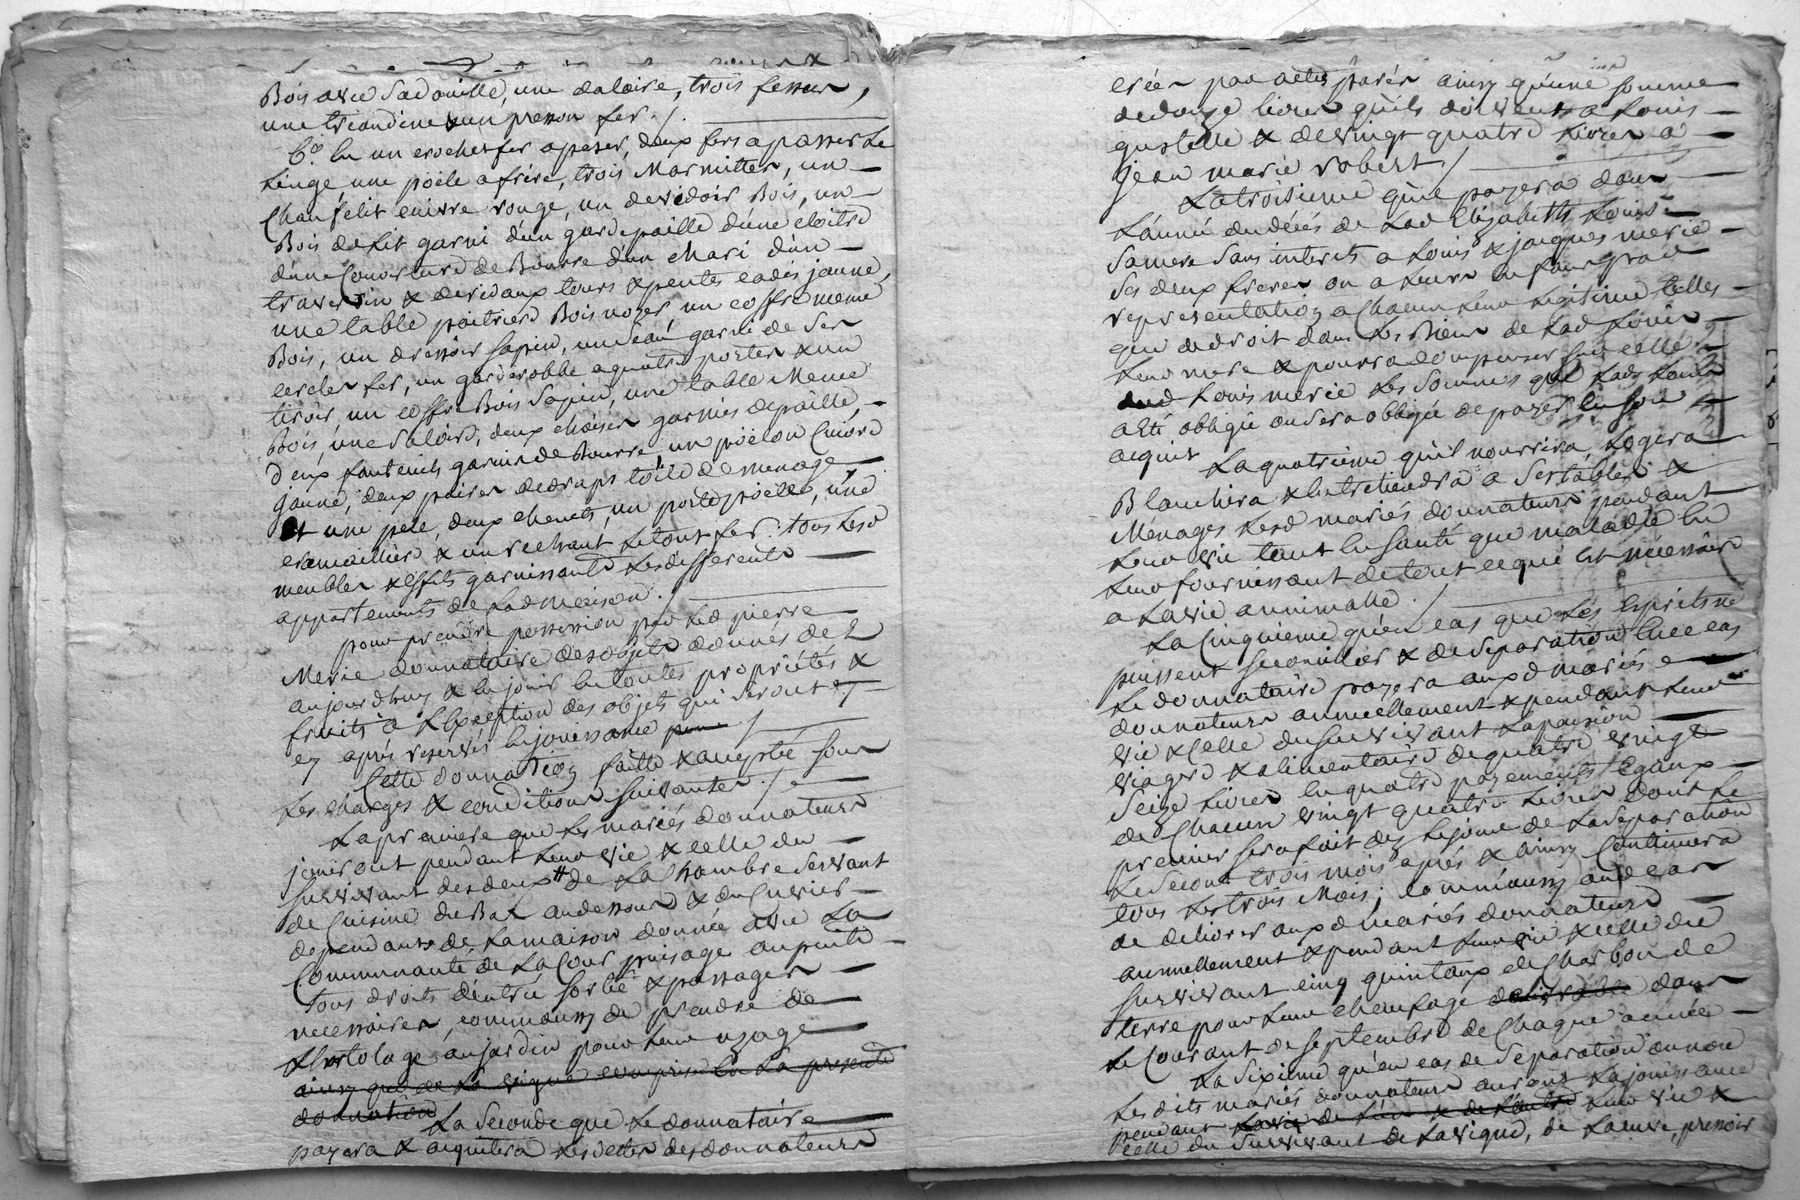 Bois avec sa douille, une dalaire, trois fessur,
une triandine & un presson fer ./.
6.° En un crochet fer a peser, deux fers a passer Le
Linge, une poële a frire, trois Marmittes, un
Chaufélit cuivre rouge, un devidoir Bois, un
Bois de Lit garni d'un gardepaille d'une cloitre
d'une Couverture de Bourre d'un chari d'un
traversin & de ridaux tours & pentes cadis jaune,
une table poitriere Bois noyer, un coffre meme
Bois, un dressoir sapin, un Seau garni de Ses
cercles fer, un garderobbe a quatre portes & un
tiroir, un coffre Bois Sapin, une table Meme
Bois, une Saloire, deux chaises garnies de paille,
deux fauteuils garnis de Bourre, un poëlon Cuivre
jaune, deux paires de draps toile de menage
et une pele, deux chenets, un porte poëlle, une
cramaillere & un rechaut Le tout fer: tous Lesd
meubles & effets garnissants Les differents
appartements de Lad maison ./.
pour prendre possession par Led pierre
Merie donnataire desd objets donnés de
aujourdhuy & En jouir En toutes propriétés &
fruits a L'Exception des objets qui Seront
cy après reservés En jouissance
Cette donnation faitte & acceptée sous
Les charges & conditions suivantes ./.
La premiere que Les mariés donnateurs
jouiront pendant Leur vie & celle du
Survivant des deux # de La Chambre Servant
de Cuisine du Bas au dessous & du Cuvier
dependants de La maison donnée avec La
Communauté de La Cour puisage au puits
tous droits d'entrée sortie & passages
necessaires, comm'aussy de prendre de
L'hortolage au jardin pour Leur usage
ainsy que de La vigne comprise En La presente
donnation La Seconde que Le donnataire
payera & acquitera Les dettes des donnateurs
créées par actes parés ainsy qu'une somme
de douze Livres qu'ils doivent a Louis
gustelle & de vingt quatre Livres a
jean marie robert ./
La troisieme qu'il payera dans
L'année du décès de Lad Elizabeth Louise
Sa mere Sans interets a Louis & jacques merie
Ses deux freres ou a Leurs
representation a Chacun Leur Legitime telles
que de droit dans Les Biens de Lad Louise
Leur mere & pourra compenser sur celle
dud Louis merie Les Sommes que Lad Louise
a Eté obligée ou Sera obligée de payer En Son
acquit La quatrieme qu'il nourrira, Logera
Blanchira & Entretiendra a Ses tables &
Ménages Lesd mariés donnateurs pendant
Leur vie tant En Santé que maladie En
Leur fournissant de tout ce qui Est nécessaire
a La vie annimalle ./
La Cinquieme qu'en cas que Les Esprits ne
puissent se concillier & de Separation En ce cas
Le donnataire payera auxd mariés
donnateurs annuellement & pendant Leur
vie & Celle du Survivant La pension
viagere & alimentaire de quatre vingt
Seize Livres En quatre payements Egaux
de Chacun vingt quatre Livres dont Le
premier Sera fait dez Le jour de La Separation
Le Second trois mois après & ainsy Continuera
tous Les trois Mois; comm'aussy aud cas
de delivrer auxd mariés donnateurs
annuellement & pendant Leur vie & celle du
Survivant cinq quintaux de Charbon de
terre pour Leur chaufage delivrable dans
Le Courant de Septembre de Chaque année
La Sixieme qu'en cas de Separation ou non
Les dits mariés donnateurs auront La jouissance
pendant La vie de L'un & de L'autre Leur vie &
celle du Survivant de La vigne, de La cuve, pressoir